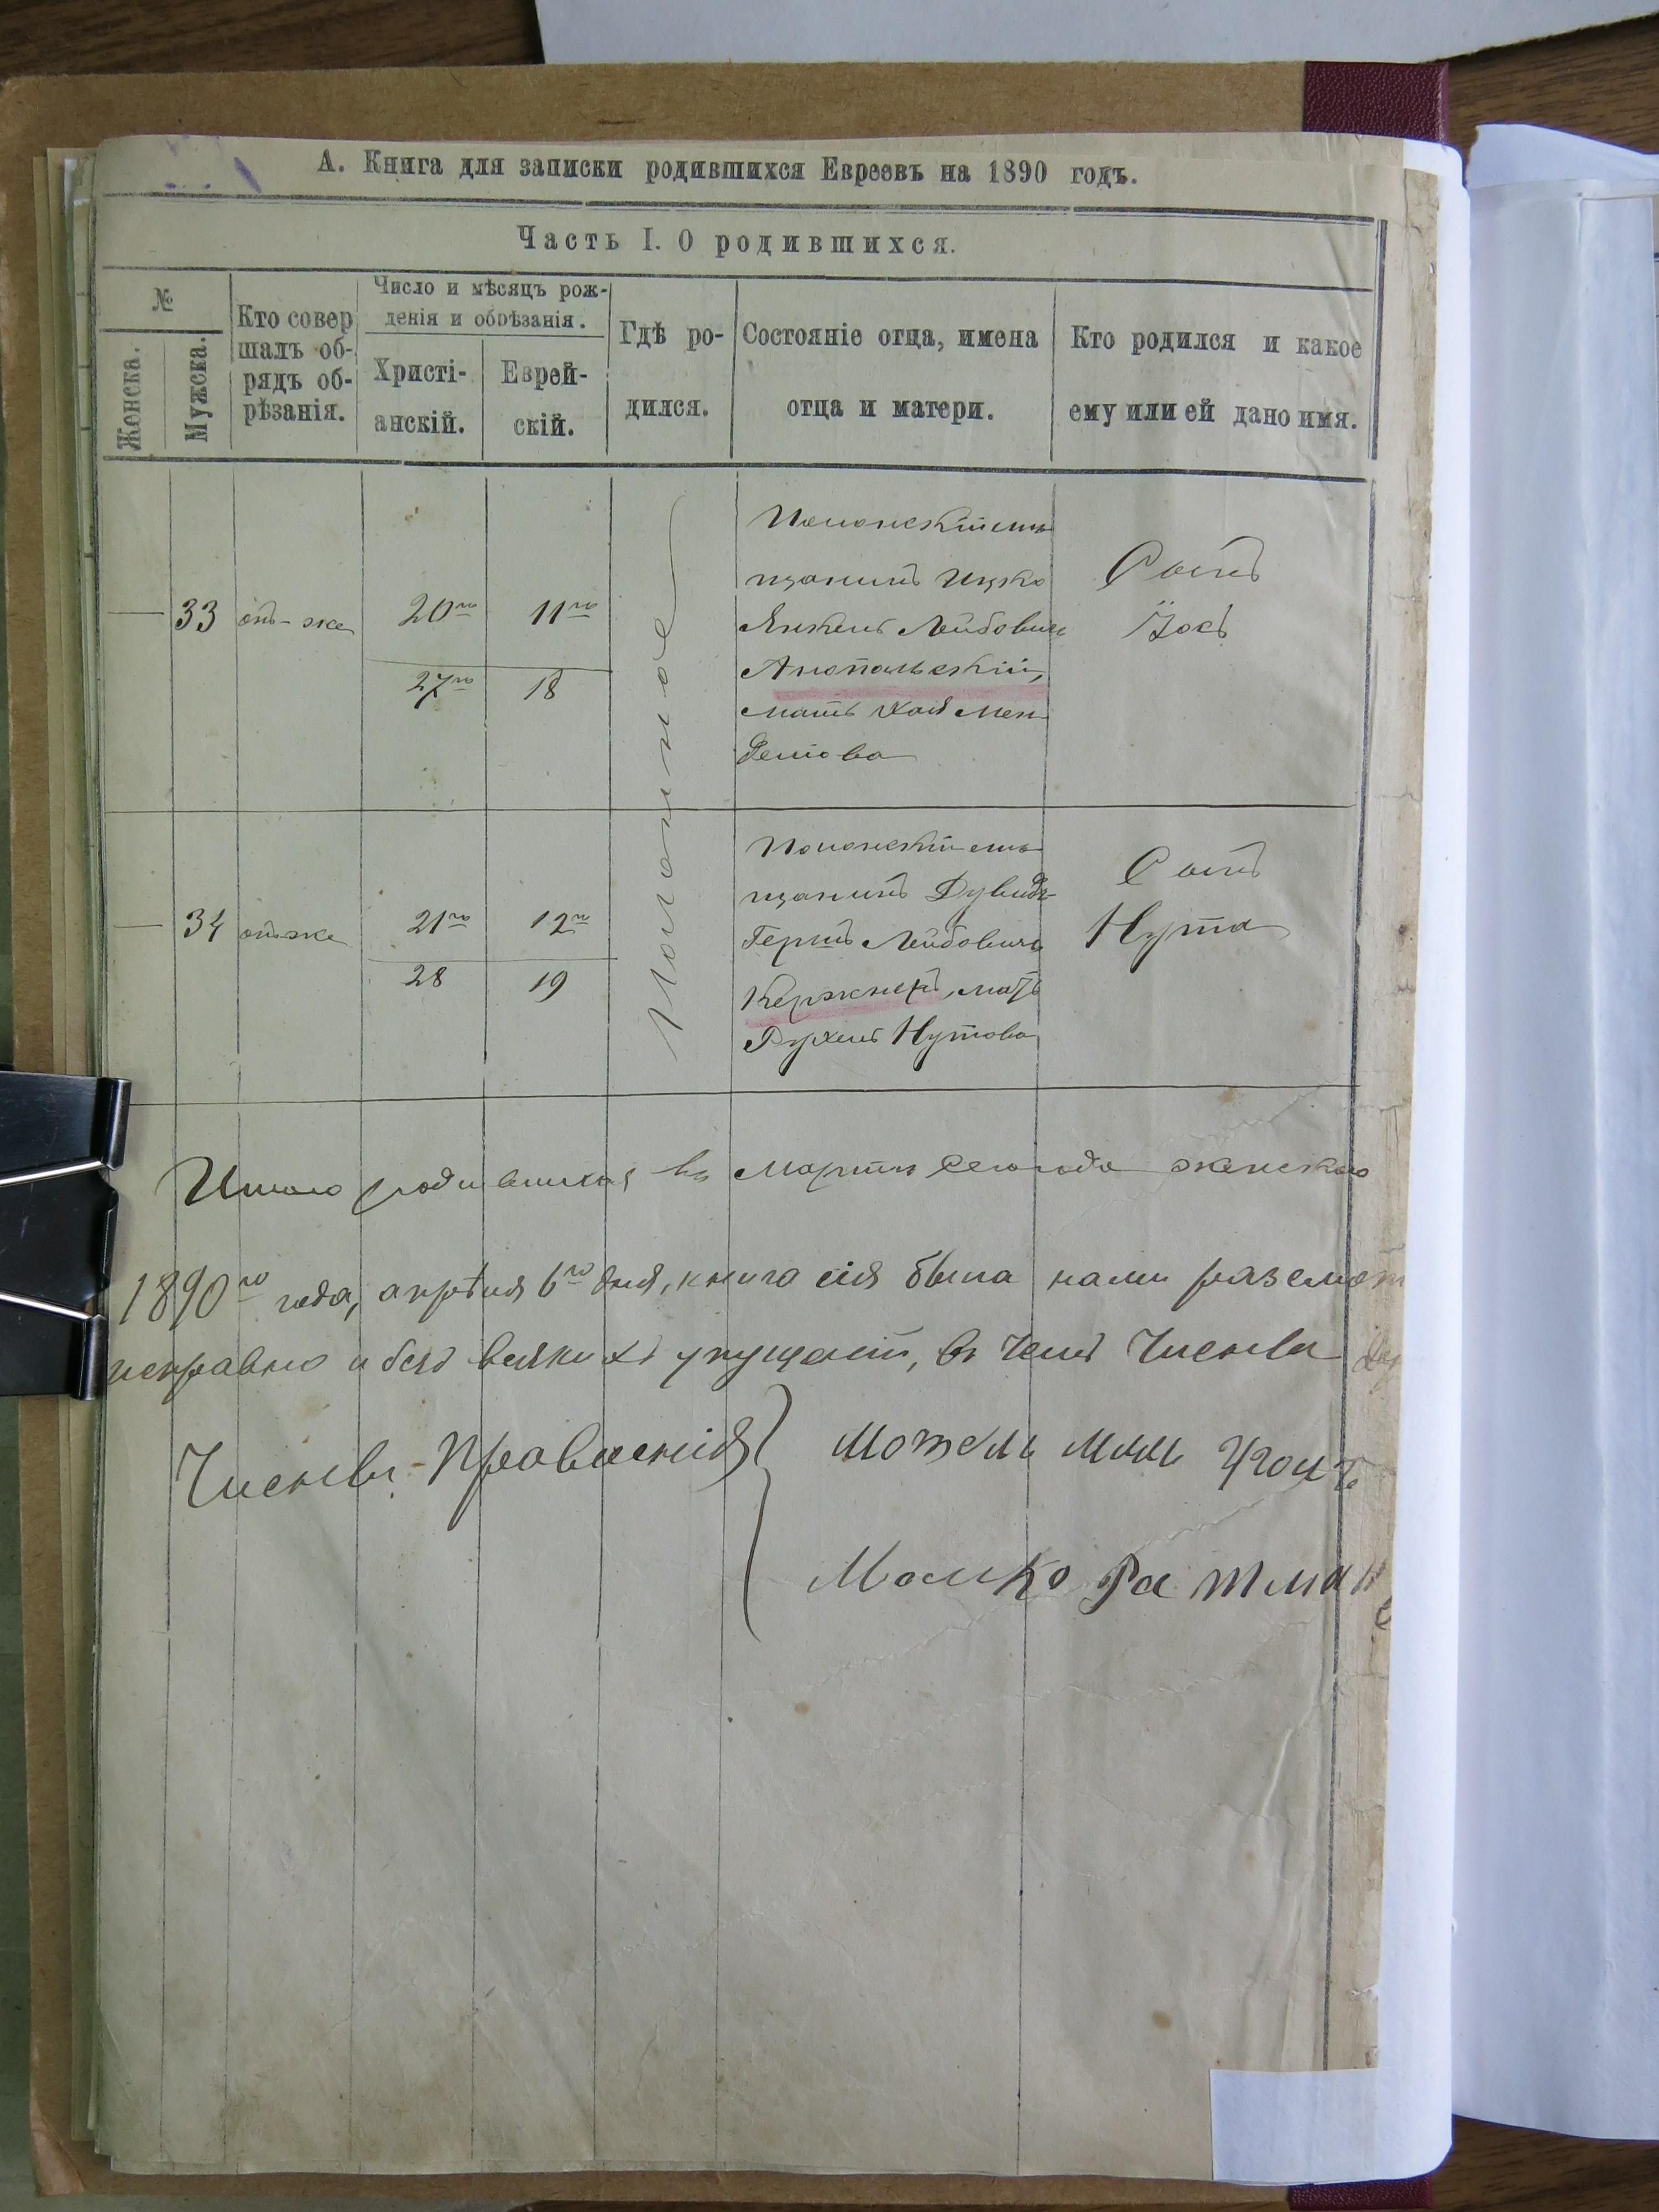 А. Книга для записки родившихся Евреевъ на 1890 годъ.
Часть I. О родившихся.
№
Женска.
Мужска.
Кто совер
шалъ об-
рядъ об-
рѣзанія.
Число и мѣсяцъ рож-
денія и обрѣзанія.
Христі-
анскій.
Еврей-
скій.
Гдѣ ро-
дился.
Состояніе отца, имена
отца и матери.
Кто родился и какое
ему или ей дано имя.
— 33 онъ-же 20го 11го
27го 18
Полонное
Полонскій мѣ
щанинъ Ицко
Янкель Лейбовичъ
Анопольскій,
мать Хая Мен
делева
Сынъ
— 34 онъ же 21го 12го
28 19
Полонскій мѣ
щанинъ Дувидъ
Гершъ Лейбовичъ
Кержнеръ, мать
Рухель Нутова
Сынъ
Нута
Итого родившихся въ Мартѣ сего года женскаго
1890го года, апрѣля 6го дня, книга сія была нами разсмот
исправно и безъ всякихъ упущеній, въ чемъ Члены
Члены Правленія
Мошко Ратман